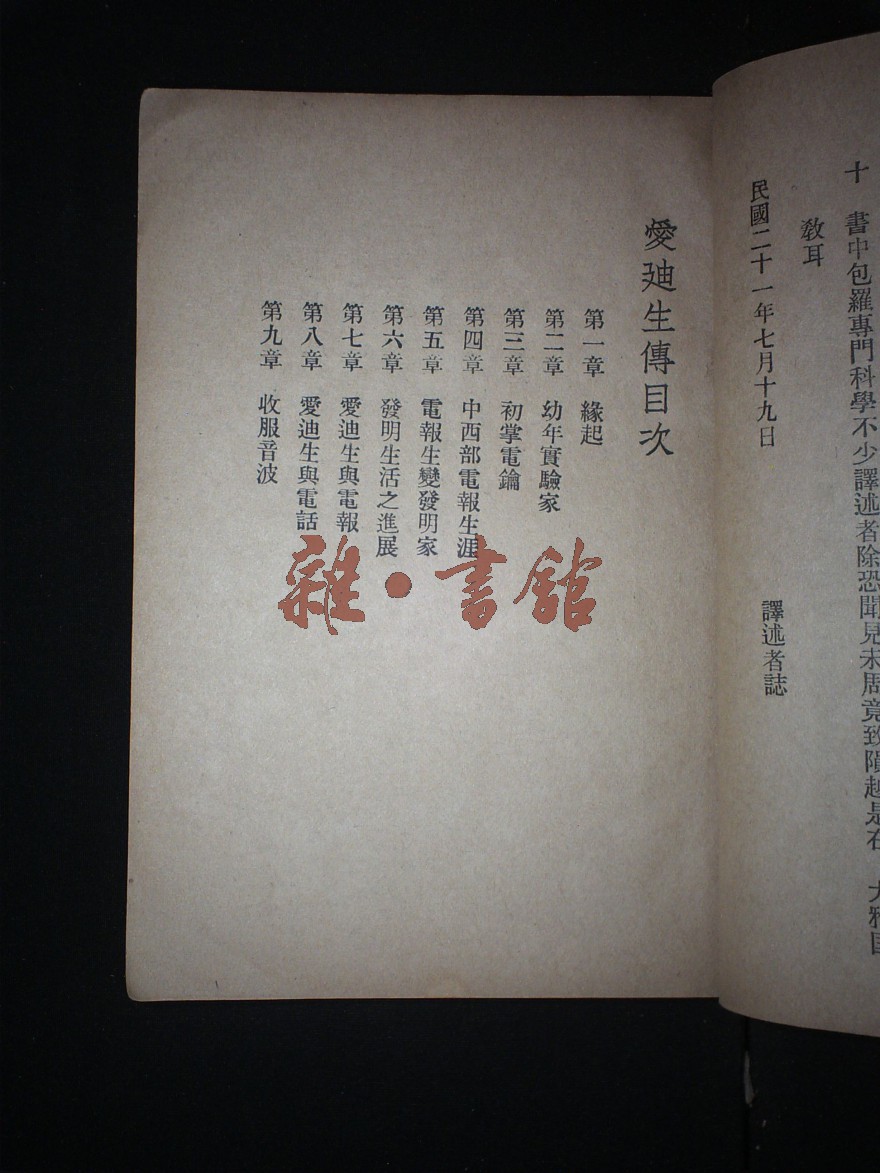 十　書中包羅專門科學不少譯述者除恐聞見未周竟致隕越是在　大雅
教耳
民國二十一年七月十九日　譯述者誌
愛迪生傳目次
第一章　緣起
第二章　幼年實驗家
第三章　初掌電鑰
第四章　中西部電報生涯
第五章　電報生變發明家
第六章　發明生活之進展
第七章　愛迪生與電報
第八章　愛迪生與電話
第九章　收服音波
雜·書館